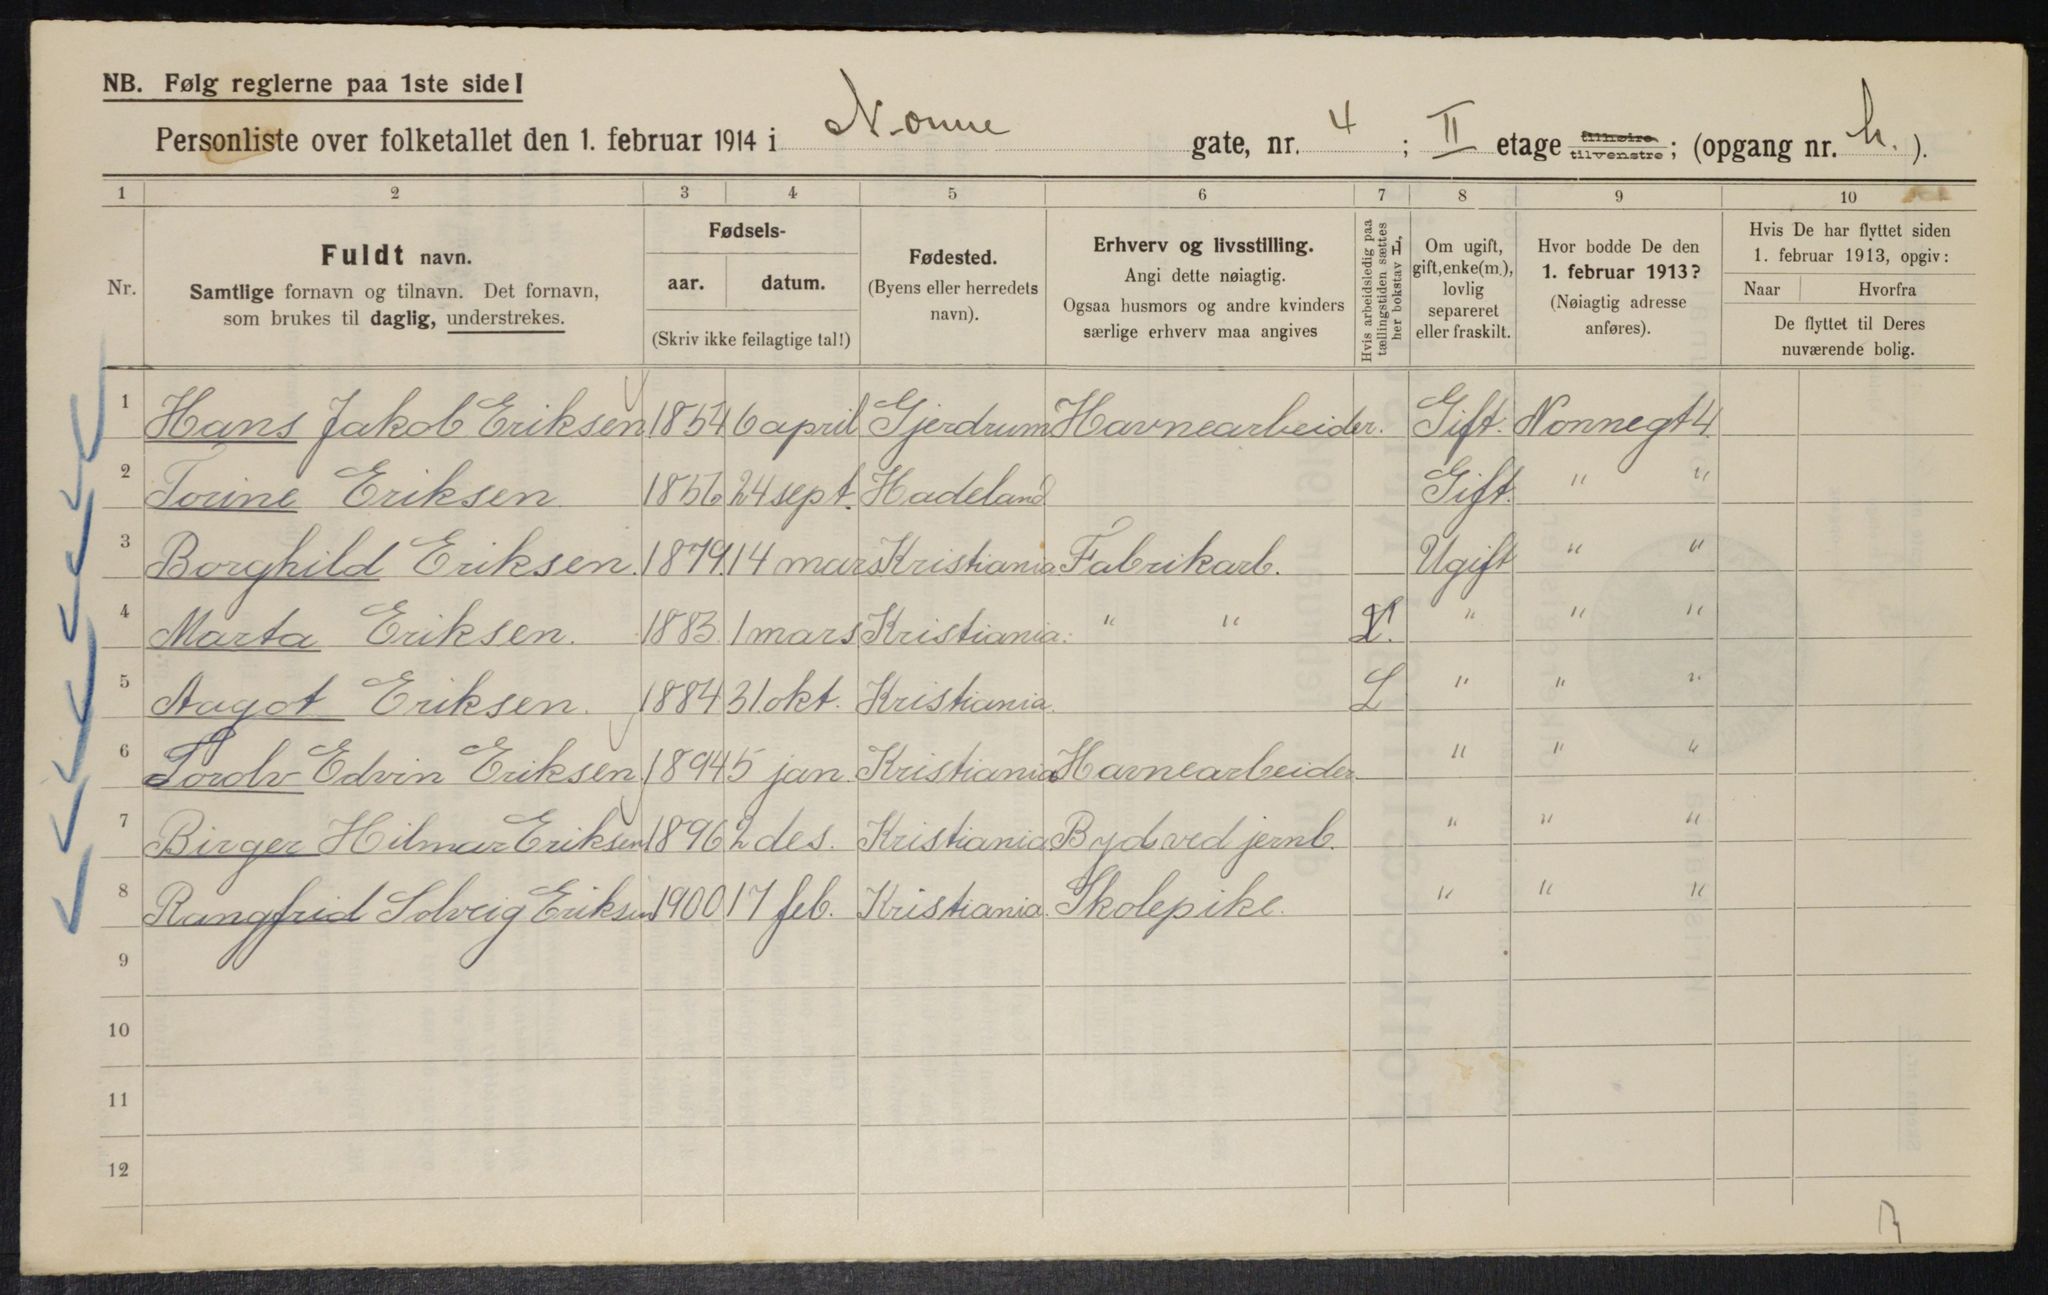 NB. Følg reglerne paa 1ste side!
Personliste over folketallet den 1. februar 1914 i Nonne gate, nr. 4 ; II etage tilhøire tilvenstre ; (opgang nr. h. ).
1 2 3 4 5 6 7 8 9 10
Nr.
Fuldt navn.
Samtlige fornavn og tilnavn. Det fornavn,
som brukes til daglig, understrekes.
Fødsels-
aar. datum.
(Skriv ikke feilagtige tal!)
Fødested.
(Byens eller herredets
navn).
Erhverv og livsstilling.
Angi dette nøiagtig.
Ogsaa husmors og andre kvinders
særlige erhverv maa angives
Hvis arbeidsledig paa
tællingstiden sættes
her bokstav L.
Om ugift,
gift, enke(m.),
lovlig
separeret
eller fraskilt.
Hvor bodde De den
1. februar 1913?
(Nøiagtig adresse
anføres).
Hvis De har flyttet siden
1. februar 1913, opgiv:
Naar Hvorfra
De flyttet til Deres
nuværende bolig.
1 Hans Jakob Eriksen 1854 6 april Gjerdrum Havnearbeider. Gift. Nonnegt 4.
2 Torine Eriksen 1856 24 sept. Hadeland Gift. " "
3 Borghild Eriksen. 1879. 14 mars Kristiania Fabrikarb. Ugift " "
4 Marta Eriksen. 1883 1 mars Kristiania. " " L. " " "
5 Aagot Eriksen. 1884 31. okt. Kristiania. L " " "
6 Torolv Edvin Eriksen 1894 5 jan. Kristiania Havnearbeider " " "
7 Birger Hilmar Eriksen 1896 2 des. Kristiania Byd. ved jernb. " " "
8 Rangfrid Solveig Eriksen 1900 17 feb. Kristiania. Skolepike. " " "
9
10
11
12